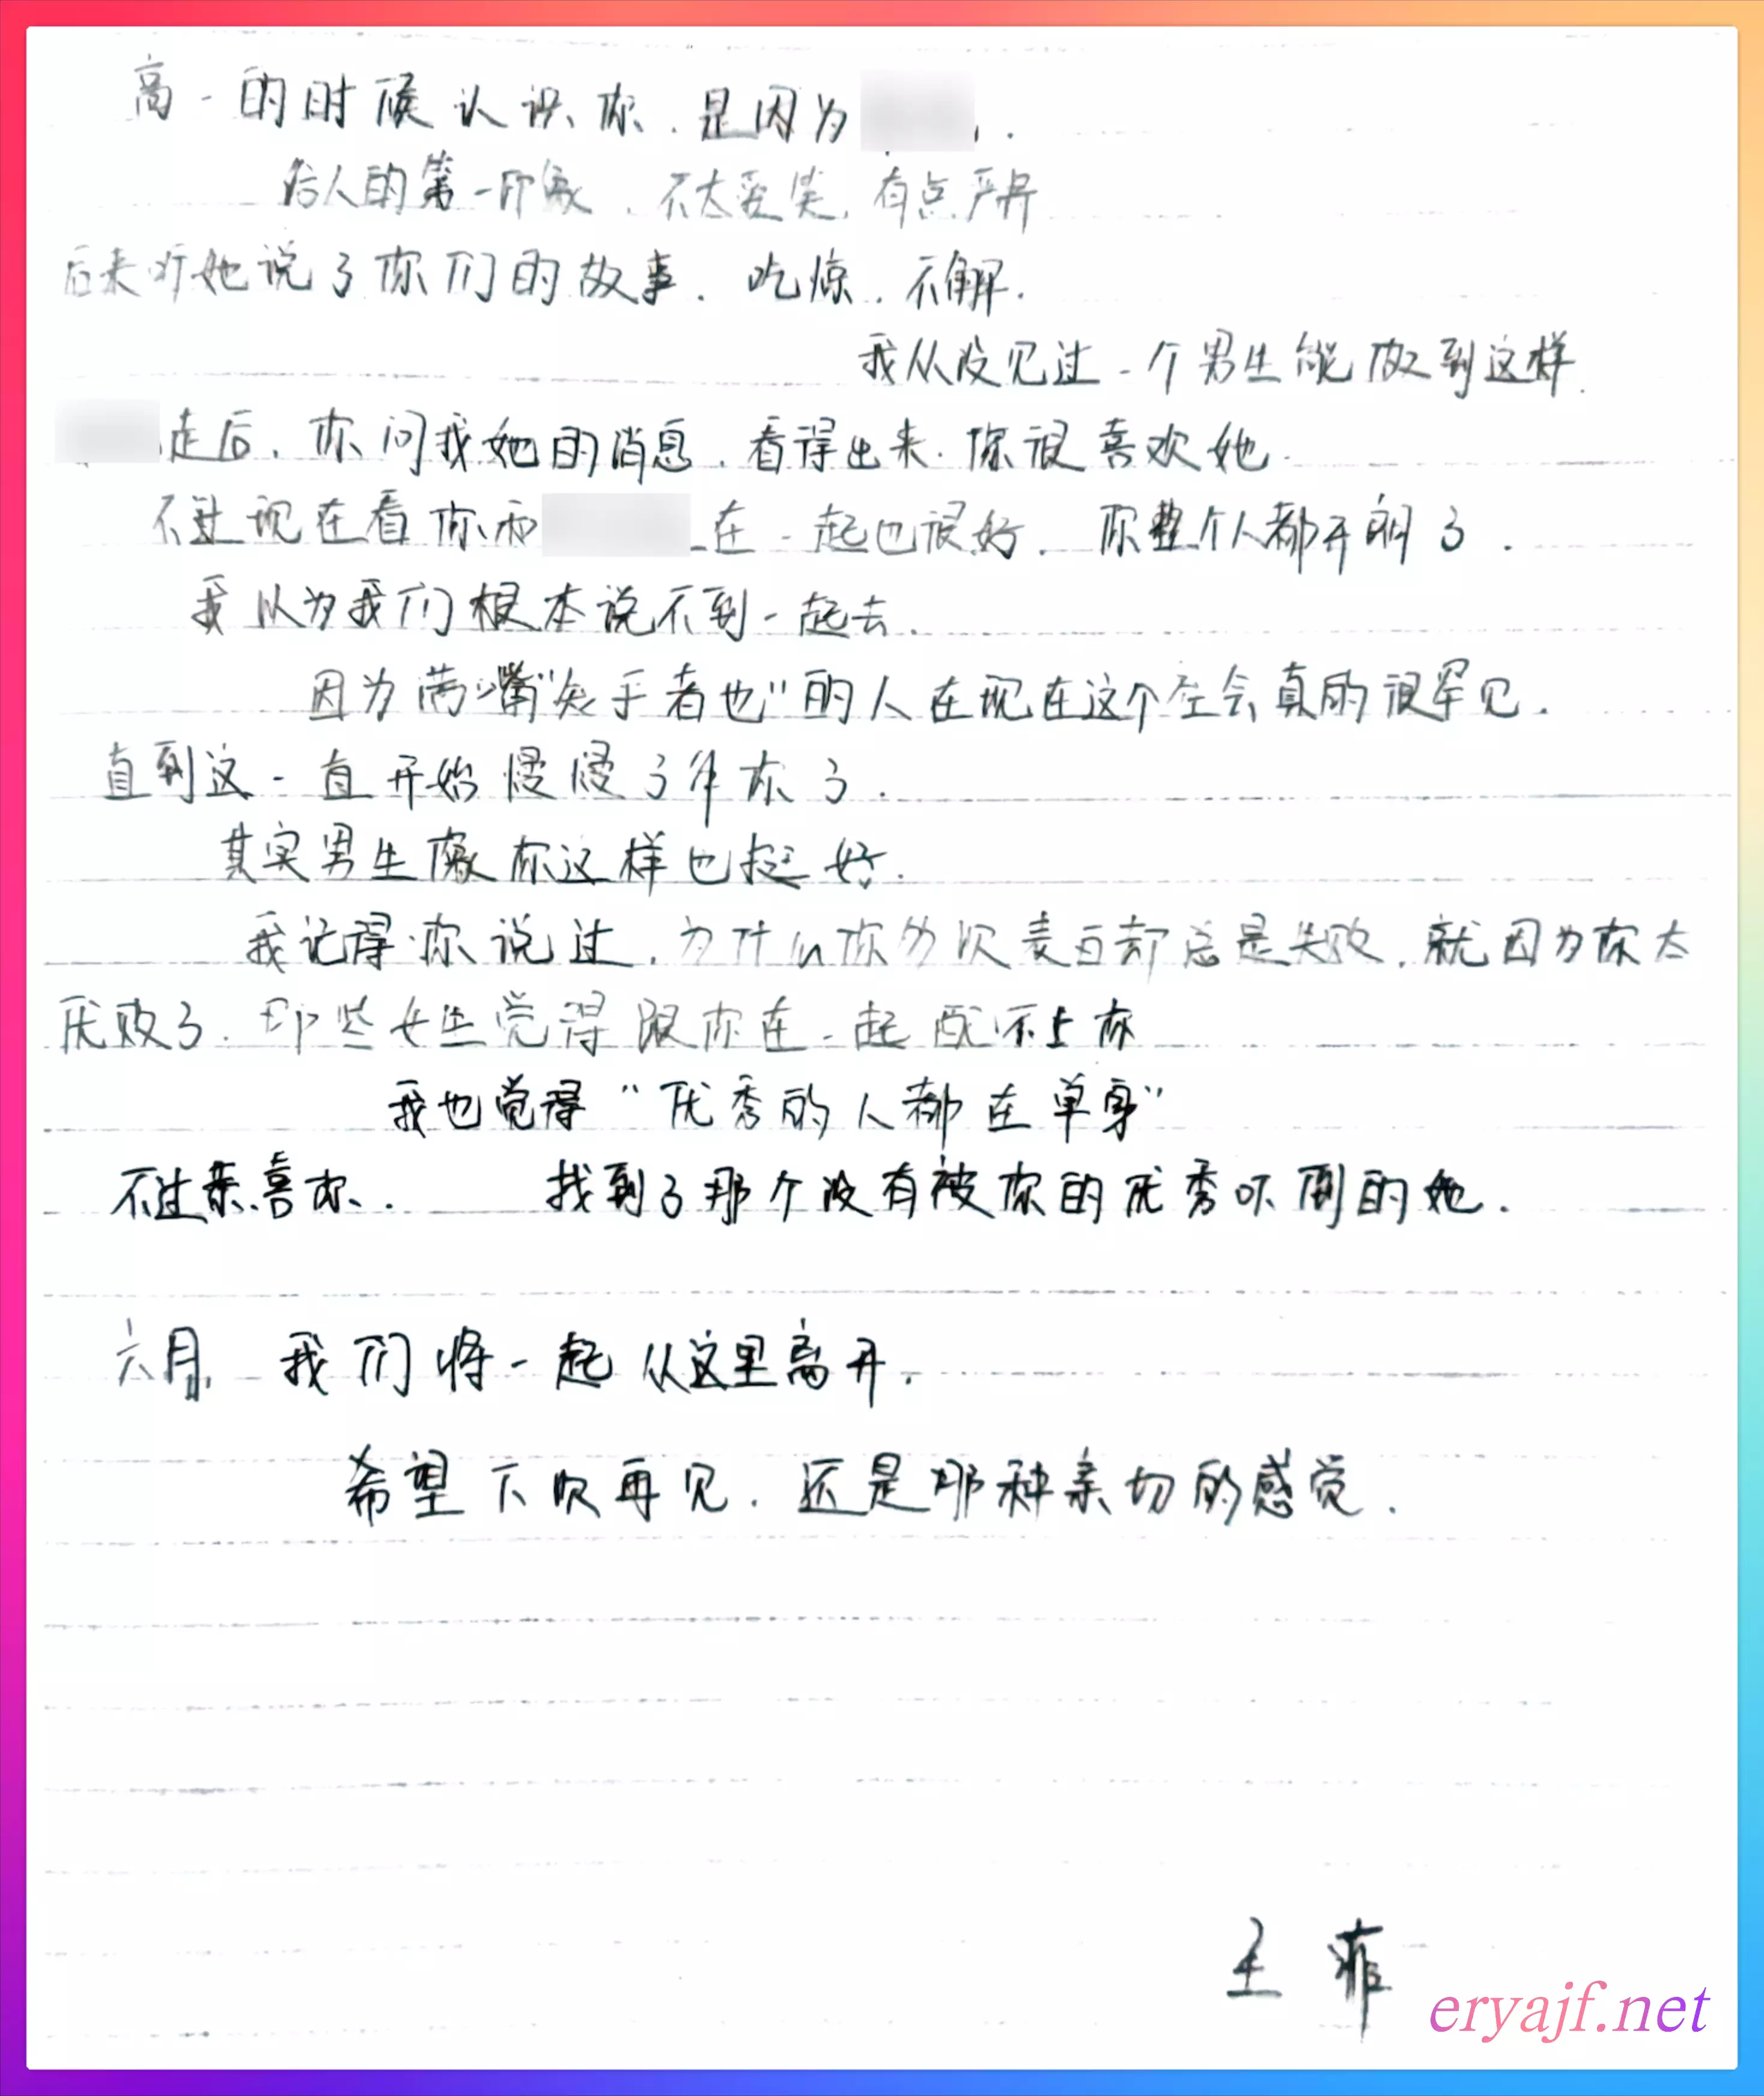 高一的时候认识你.是因为
给人的第一印象、不太爱笑,有点严肃
后来听她说了你们的故事.吃惊.不解.
我从没见过一个男生能做到这样.
走后.你问我她的消息.看得出来.你很喜欢她.
不过现在看你和在一起也很好.你整个人都开朗了.
我以为我们根本说不到一起去.
因为满嘴"矣乎者也"的人在现在这个社会真的很罕见.
直到这一直开始慢慢了解你了.
其实男生像你这样也挺好.
我记得你说过.为什么你多次表白却总是失败.就因为你太
优败了.那些女生觉得跟你在一起配不上你
我也觉得"优秀的人都在单身"
不过恭喜你.找到了那个没有被你的优秀吓倒的她.
六月、我们将一起从这里离开.
希望下次再见.还是那种亲切的感觉.
王菲
eryajf.net